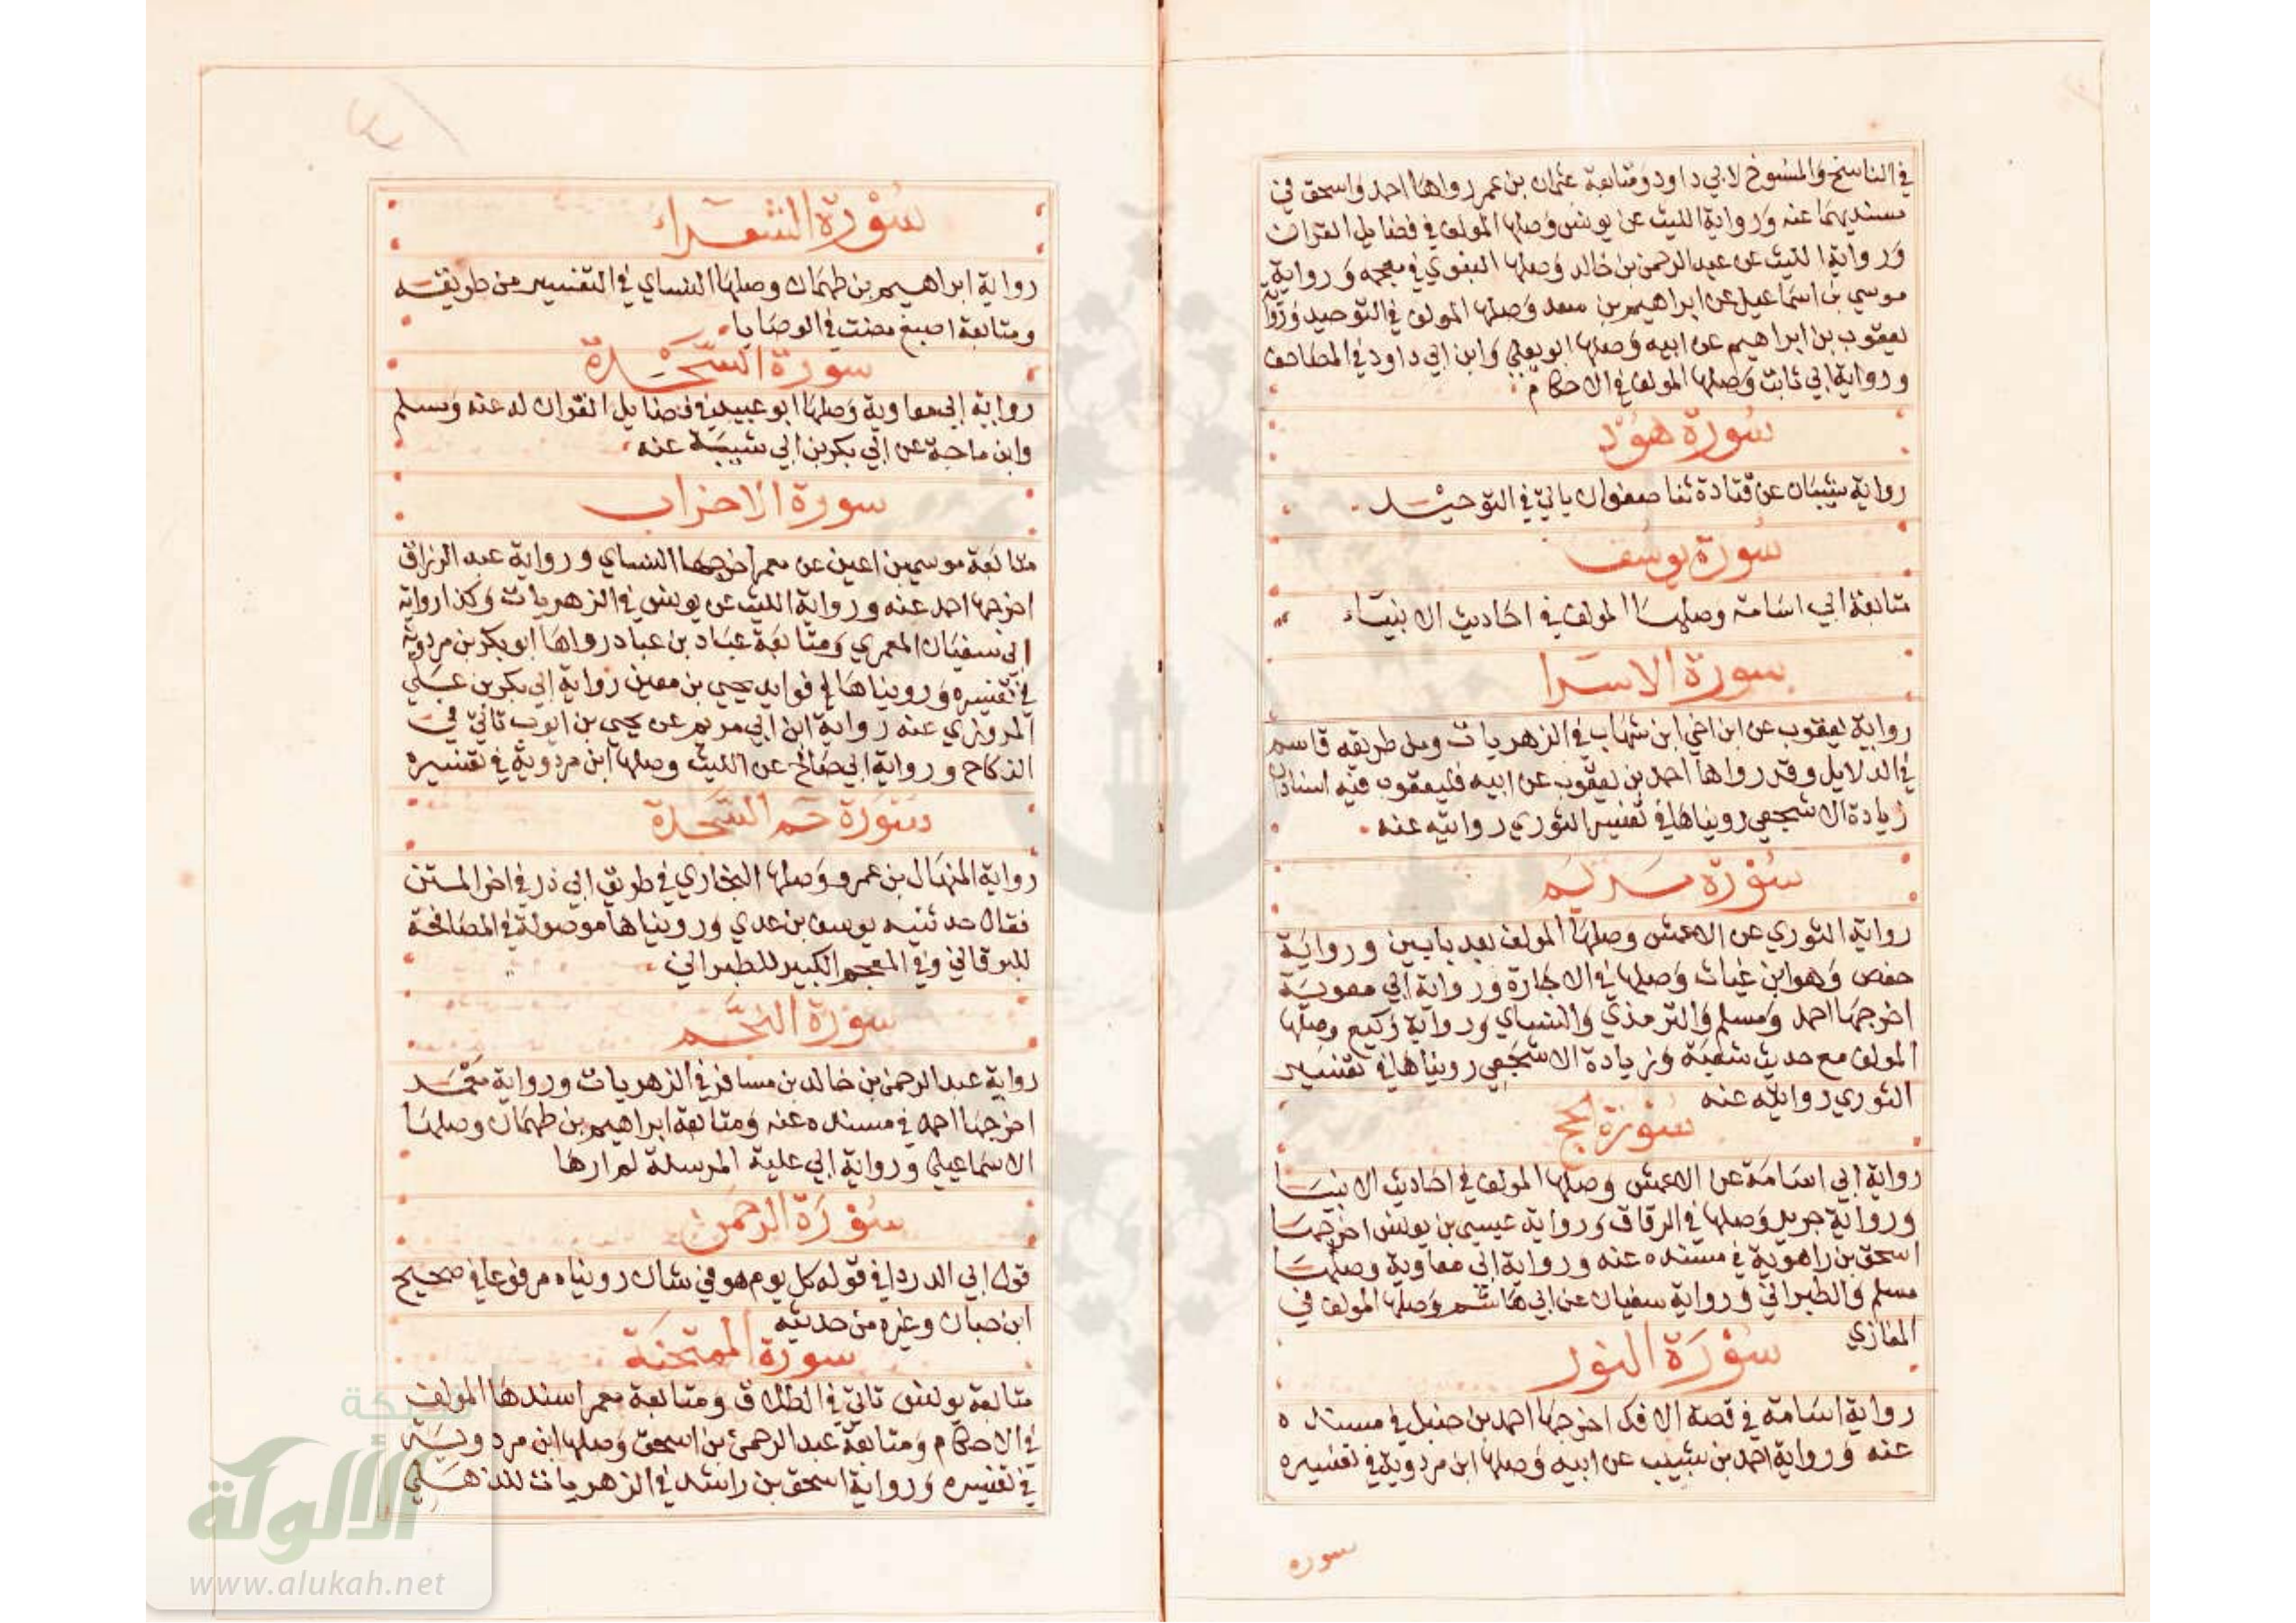 في الناسخ والمنسوخ لابي داود ومتابعة عثمان بن عمر رواها احمد واسحق في
مسنديهما عنه ورواية الليث عن يونس وصلها المولف في فضايل القران
ورواية الليث عن عبد الرحمن بن خالد وصلها البغوي في معجمه ورواية
موسي بن اسماعيل عن ابراهيم بن سعد وصلها المولف في التوحيد ورواية
يعقوب بن ابراهيم عن ابيه وصلها ابو يعلي وابن ابي داود في المصاحف
ورواية ابي ثابت وصلها المولف في الاحكام
سورة هود
رواية شيبان عن قتادة ثنا صفوان ياتي في التوحيد
سورة يوسف
متابعة ابي اسامة وصلها المولف في احاديث الانبياء
سورة الاسرا
رواية يعقوب عن ابن اخي ابن شهاب في الزهريات ومن طريقه قاسم
في الدلايل وقد رواها احمد بن يعقوب عن ابيه فليعقوب فيه اسنادان
زيادة الاشجعي رويناها في تفسير الثوري روايته عنه
سورة مريم
رواية الثوري عن الاعمش وصلها المولف بعد بابين ورواية
حفص وهو ابن غياث وصلها في الاجارة ورواية ابي معوية
اخرجها احمد ومسلم والترمذي والنسياي ورواية وكيع وصلها
المولف مع حديث شعبة وزيادة الاشجعي رويناها في تفسير
الثوري روايته عنه
سورة الحج
رواية ابي اسامة عن الاعمش وصلها المولف في احاديث الانبيا
ورواية جرير وصلها في الرقاق ورواية عيسي بن يونس اخرجها
اسحق بن راهوية في مسنده عنه ورواية ابي معاوية وصلها
مسلم والطبراني ورواية سفيان عن ابي هاشم وصلها المولف في
المغازي
سورة النور
رواية اسامة في قصة الافك اخرجها احمد بن حنبل في مسنده
عنه ورواية احمد بن شبيب عن ابيه وصلها ابن مردوية في تفسيره
سوره
سورة الشعراء
رواية ابراهيم بن طهمان وصلها النساي في التفسير من طريقه
ومتابعة اصبغ مضت في الوصايا
سورة السجدة
رواية ابي معاوية وصلها ابو عبيد في فضايل القران له عنه ومسلم
وابن ماجة عن ابي بكر بن ابي شيبة عنه
سورة الاحزاب
متابعة موسي بن اعين عن معمر اخرجها النساي ورواية عبد الرزاق
اخرجها احمد عنه ورواية الليث عن يونس في الزهريات وكذا رواية
ابي سفيان المعمري ومتابعة عباد بن عباد رواها ابو بكر بن مردوية
في تفسيره ورويناها في فوايد يحيي بن معين رواية ابي بكر بن علي
المروزي عنه رواية ابن ابي مريم عن يحيي بن ايوب تاتي في
النكاح ورواية ابي صالح عن الليث وصلها ابن مردوية في تفسيره
سورة حم السجدة
رواية المنهال بن عمرو وصلها البخاري في طريق ابي ذر في اخر المتن
فقال حدثنيه يوسف بن عدي ورويناها موصولة في المصافحة
للبرقاني وفي المعجم الكبير للطبراني
سورة النجم
رواية عبد الرحمن بن خالد بن مسافر في الزهريات ورواية معمر
اخرجها احمد في مسنده عنه ومتابعة ابراهيم بن طهمان وصلها
الاسماعيلي ورواية ابي علية المرسلة لم ارها
سورة الرحمن
قول ابي الدردا في قوله كل يوم هو في شان رويناه مرفوعا في صحيح
ابن حبان وغيره من حديثه
سورة الممتحنة
متابعة يونس تاتي في الطلاق ومتابعة معمر اسندها المولف
في الاحكام ومتابعة عبد الرحمن بن اسحق وصلها ابن مردوية
في تفسيره ورواية اسحق بن راشد في الزهريات للذهلي
شبكة
الألوكة
www.alukah.net